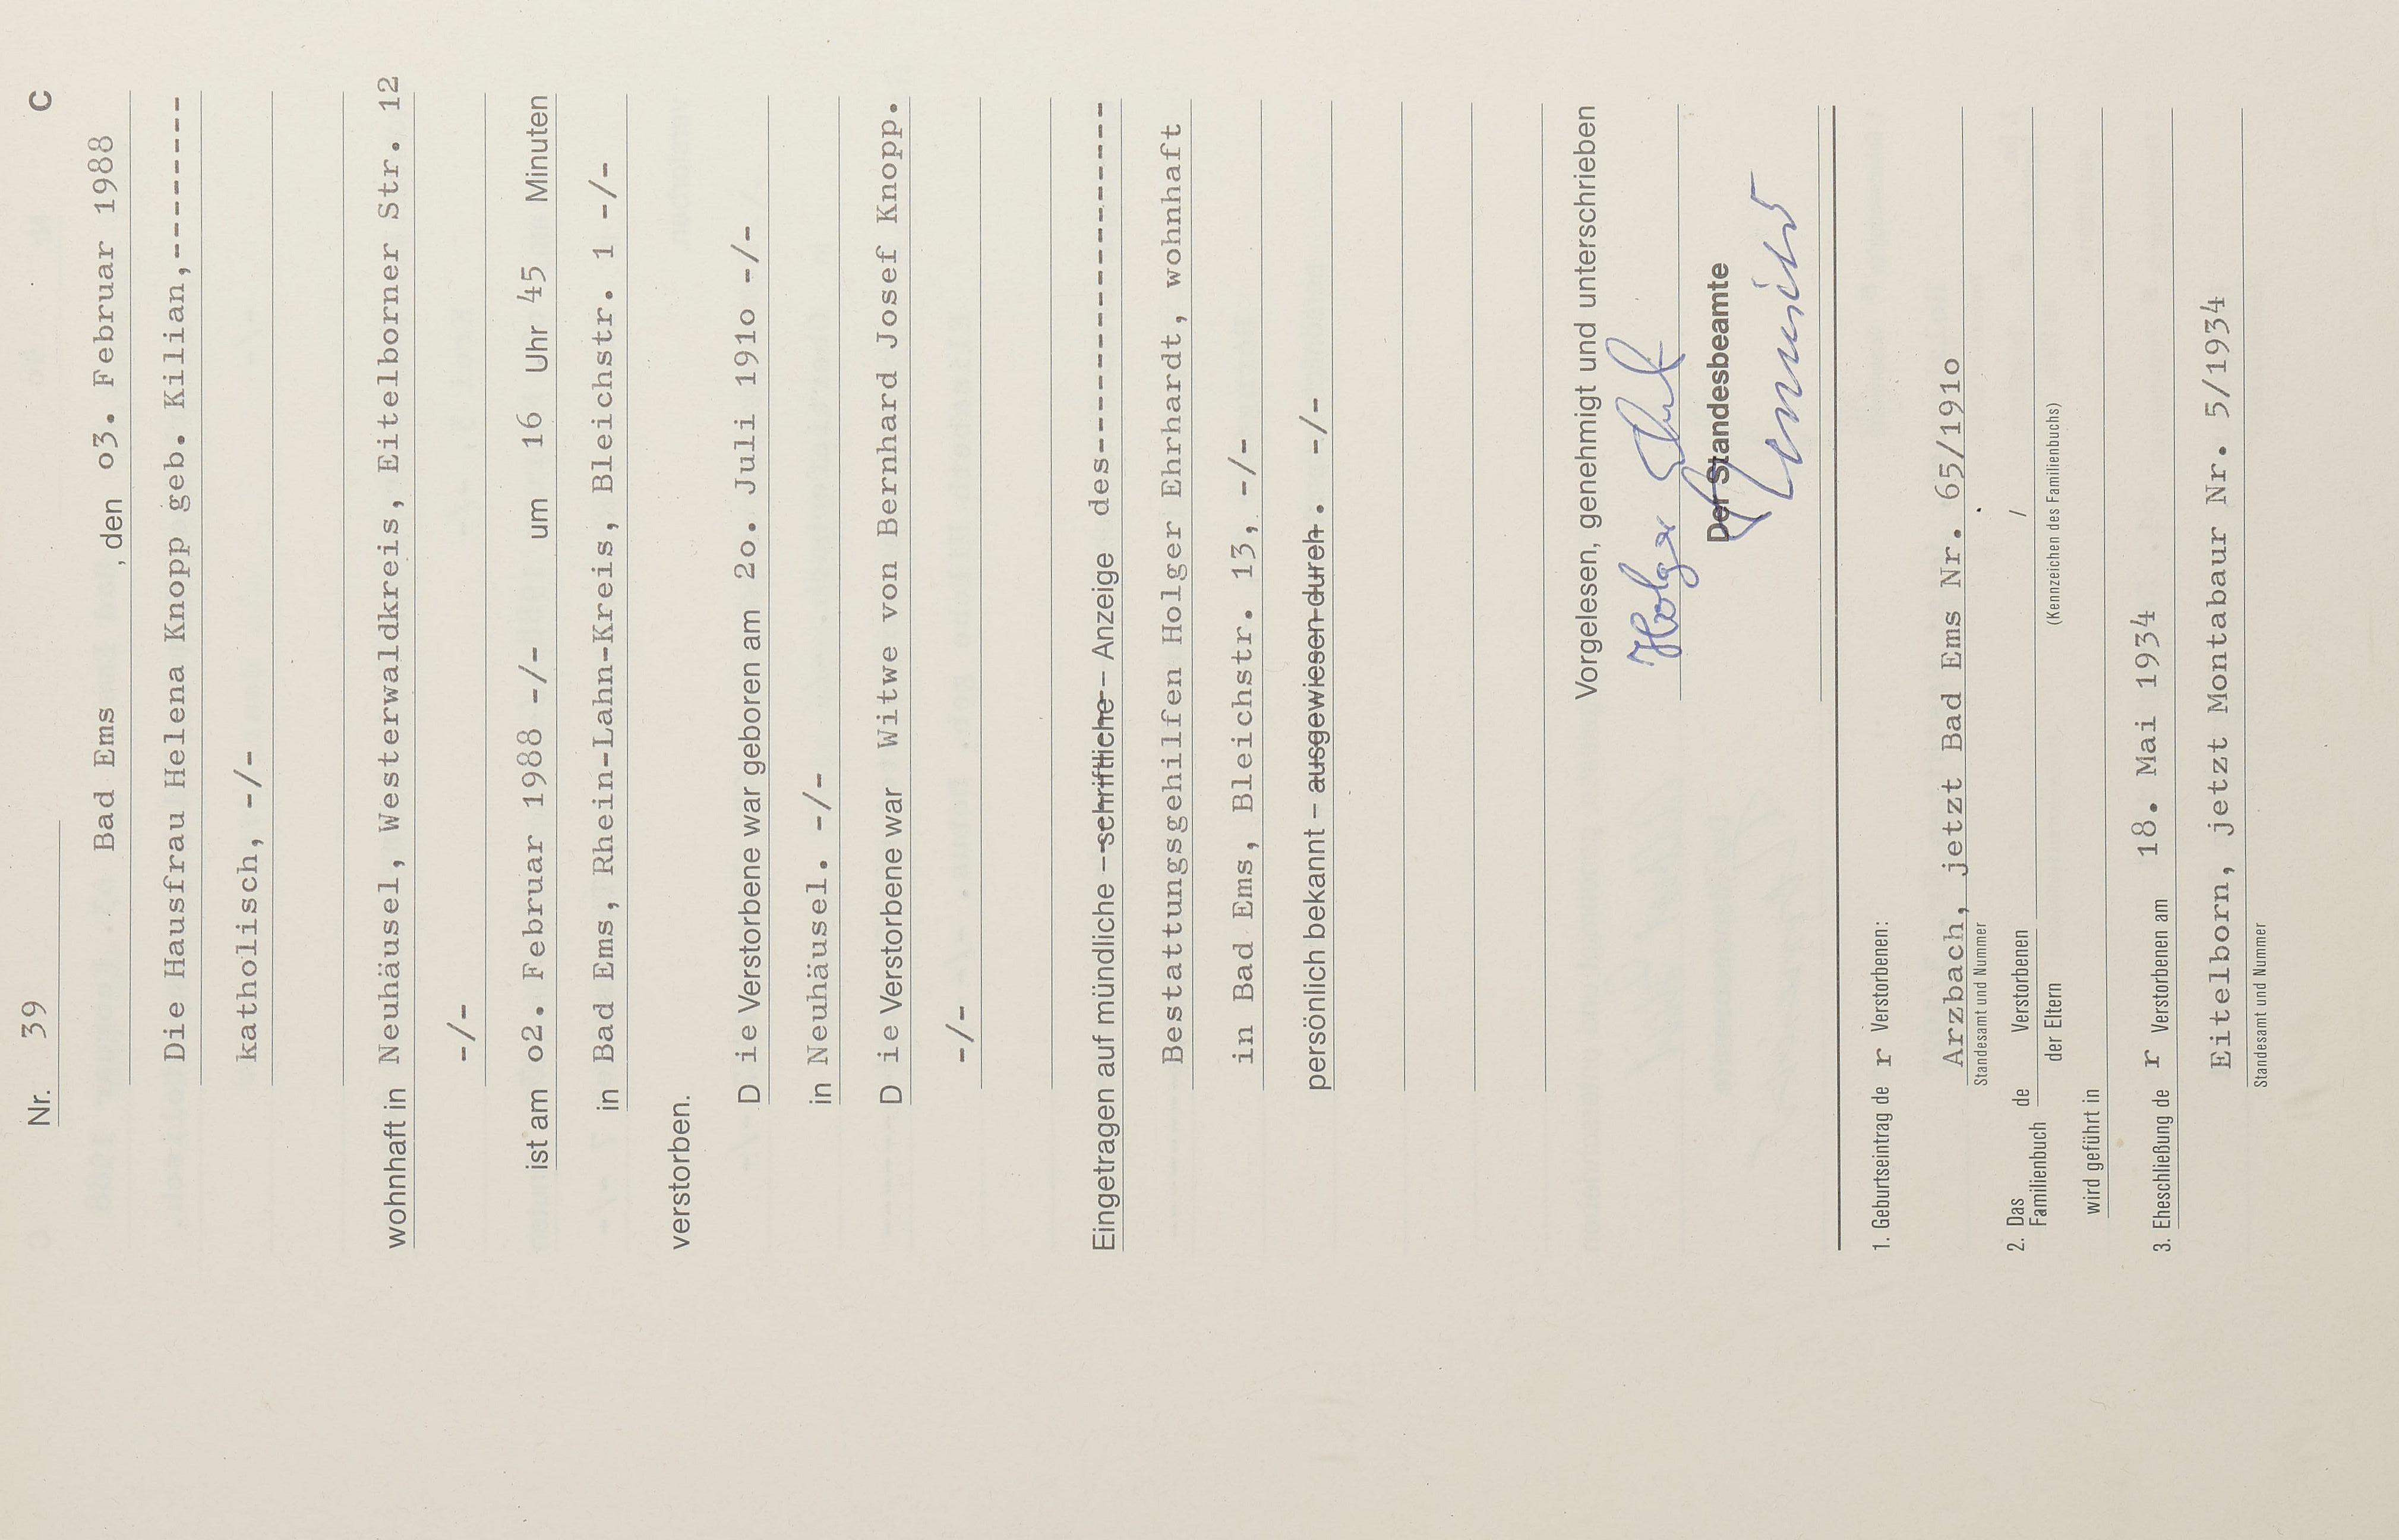 Nr. 39 C
Bad Ems , den o3. Februar 1988
Die Hausfrau Helena Knopp geb. Kilian,---------
katholisch, -/-
wohnhaft in Neuhäusel, Westerwaldkreis, Eitelborner Str. 12
-/-
ist am o2. Februar 1988 -/- um 16 Uhr 45 Minuten
in Bad Ems, Rhein-Lahn-Kreis, Bleichstr. 1 -/-
verstorben.
D ie Verstorbene war geboren am 2o. Juli 191o -/-
in Neuhäusel. -/-
D ie Verstorbene war Witwe von Bernhard Josef Knopp.
-/-
Eingetragen auf mündliche – schriftliche – Anzeige des--------------------
Bestattungsgehilfen Holger Ehrhardt, wohnhaft
in Bad Ems, Bleichstr. 13, -/-
persönlich bekannt – ausgewiesen durch. -/-
Vorgelesen, genehmigt und unterschrieben
Holger
Der Standesbeamte
1. Geburtseintrag de r Verstorbenen:
Arzbach, jetzt Bad Ems Nr. 65/191o
Standesamt und Nummer
2. Das Familienbuch de Verstorbenen /
der Eltern (Kennzeichen des Familienbuchs)
wird geführt in
3. Eheschließung de r Verstorbenen am 18. Mai 1934
Eitelborn, jetzt Montabaur Nr. 5/1934
Standesamt und Nummer